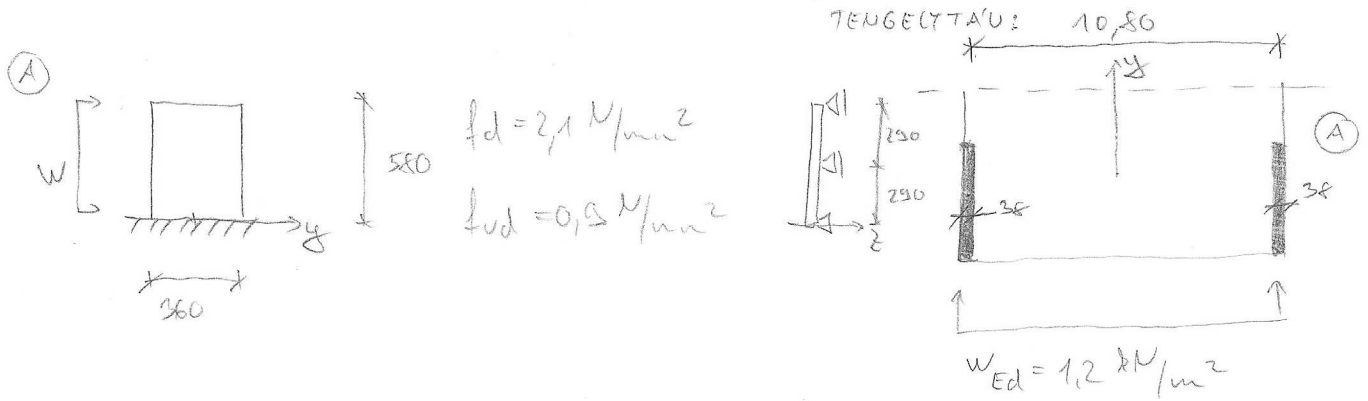 TENGELYTÁV: 10,80
A
W
360
y
580
fd = 2,1 N/mm²
fvd = 0,9 N/mm²
290
290
z
y
A
38
38
wEd = 1,2 kN/m²